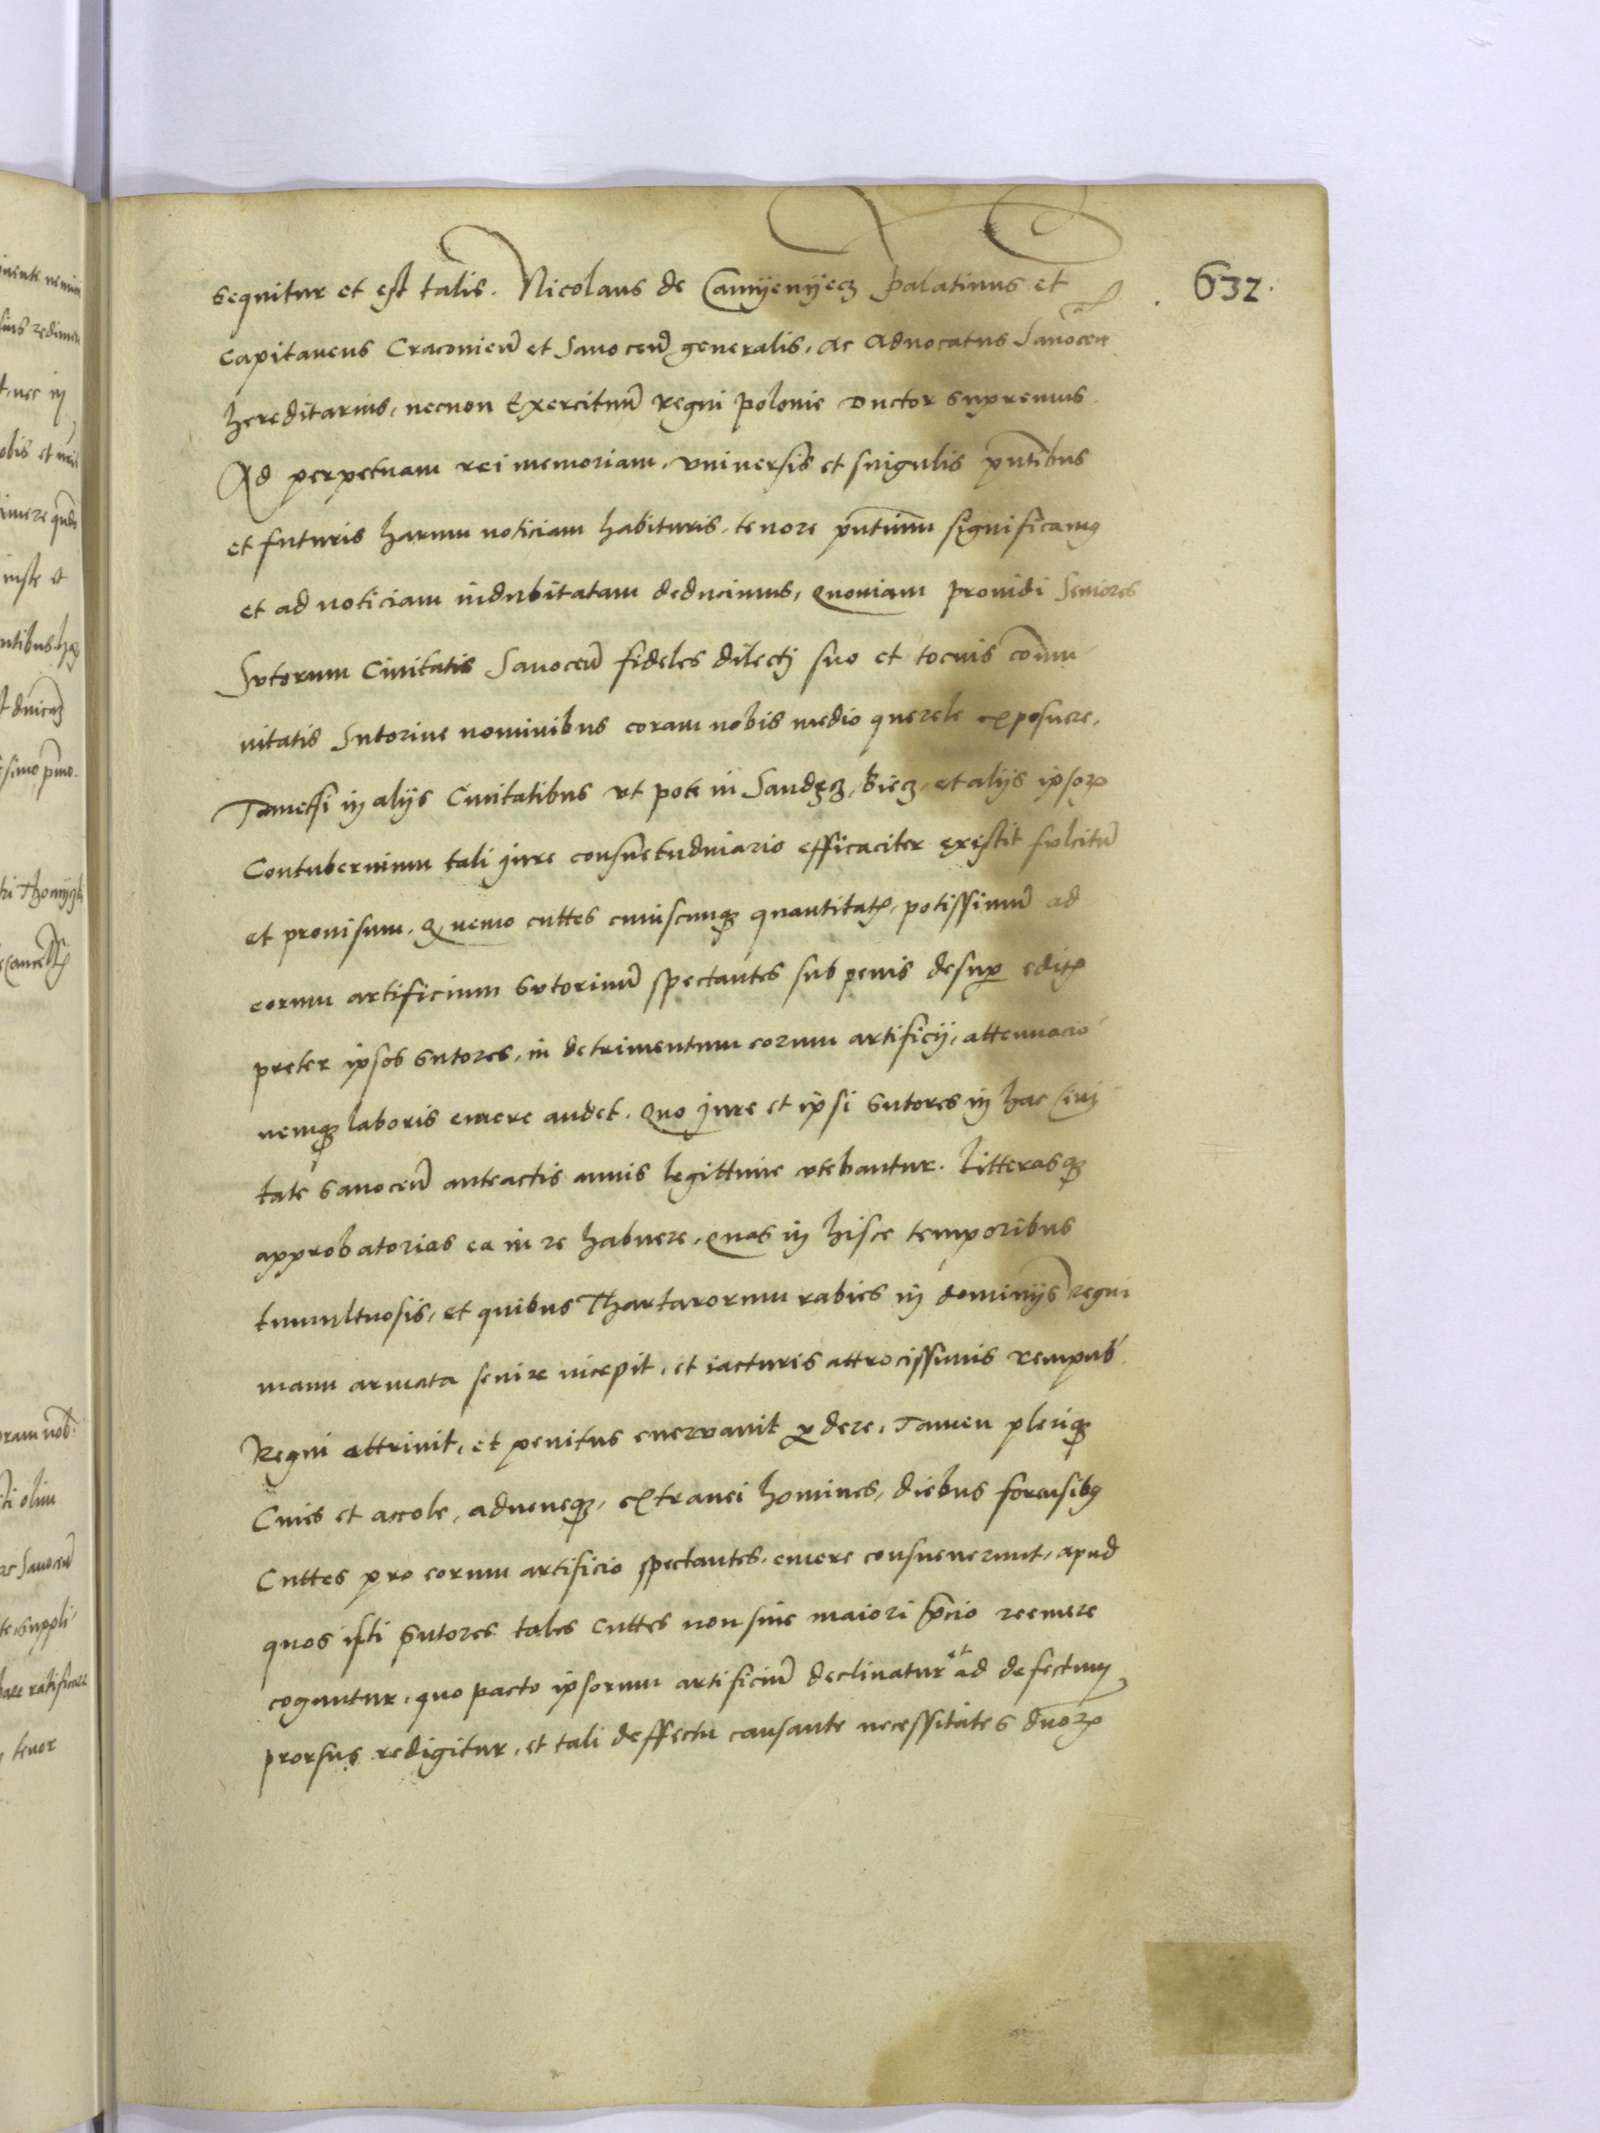 632.
sequitur et est talis. Nicolaus de Camyenyecz palatinus et
capitaneus Cracovien̄ et Sanocen̄ generalis, ac Advocatus Sanocen̄
hereditarius, necnon Exercituū regni polonie Ductor supremus.
Ad perpetuam rei memoriam, vniversis et singulis pn̄tibus
et futuris harum noticiam habituris, tenore pn̄tium significamus
et ad noticiam indubitatam deducimus, Quoniam providi Seniores
Sutorum Civitatis Sanocen̄ fideles dilecti suo et tocius com̄u-
nitatis Sutorine nominibus coram nobis medio querele exposuere,
Tametsi in aliis Civitatibus vt pote in Sandecz, Biecz, et aliis ipsorꝫ
Contubernium tali jure consuetudinario efficaciter existit fulcitū
et provisum, Qꝫ nemo cuttes cuiuscunqꝫ quantitatis, potissimū ad
eorum artificium sutoriuū spectantes sub penis desup edit̄
preter ipsos sutores, in detrimentum eorum artificij, attenuacio-
nemqꝫ laboris emere audet. Quo jure et ipsi sutores in hac Civi-
tate Sanocen̄ anteactis annis legittime vtebantur. Litterasqꝫ
approbatorias ea in re habuere, Quas in hisce temporibus
tumultuosis, et quibus Thartarorum rabies in dominiis regni
manu armata sevire incepit, et iacturis attrocissimis rempub.
Regni attrivit, et penitus enervavit ꝑdere, Tamen pleriqꝫ
Cives et accole, adveneqꝫ, extranei homines, diebus forensibꝫ
Cuttes pro eorum artificio spectantes, emere consueverunt, apud
quos isti Sutores tales Cuttes non sine maiori p̄cio reemere
coguntur, quo pacto ipsorum artificiū declinatur et ad defectum
prorsus redigitur, et tali deffectu causante necessitates duorꝫ